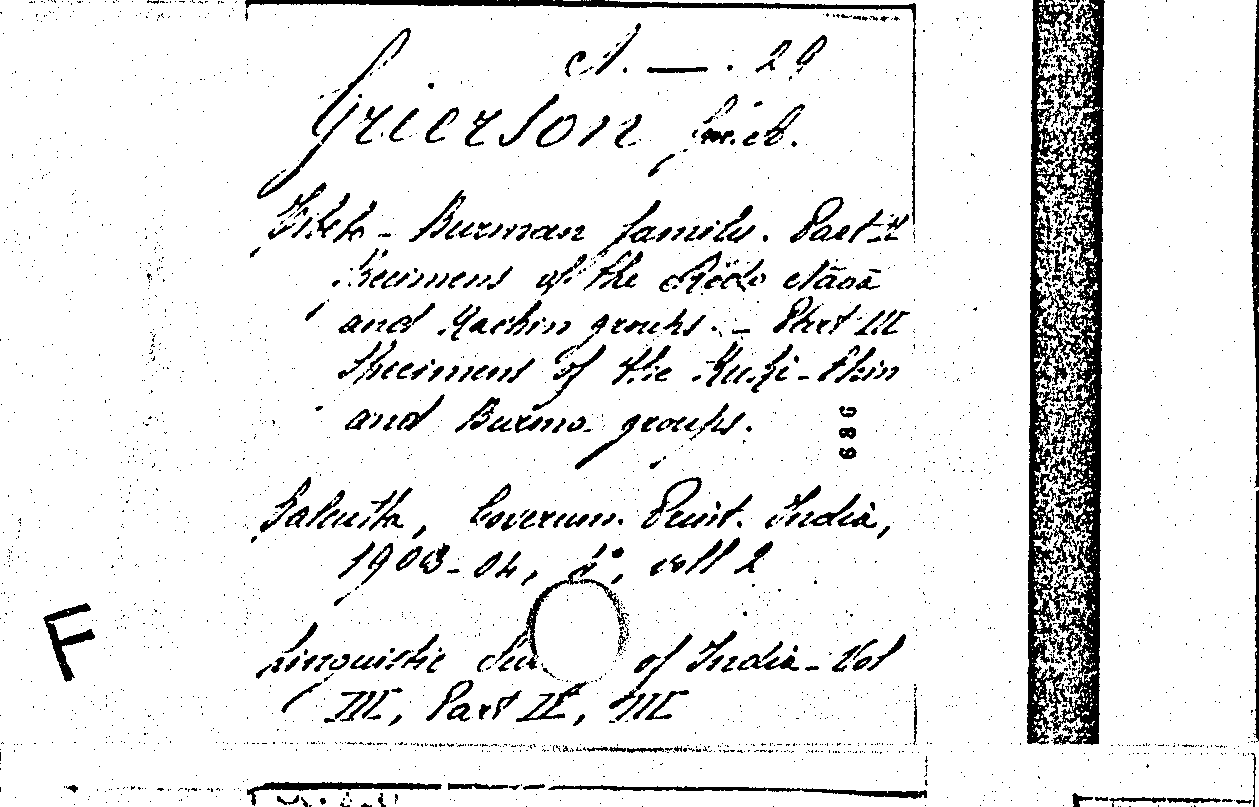 A. — . 29
Grierson
Tibeto - Burman family. Part II
Specimens of the Bodo Nāgā
and Kachin groups. - Part III
Specimens of the Kuki - Chin
and Burma groups.
089
Calcutta, Governm. Print. India,
1903-04, 4°, voll 2
Linguistic Su of India - Vol
III, Part II, III
F